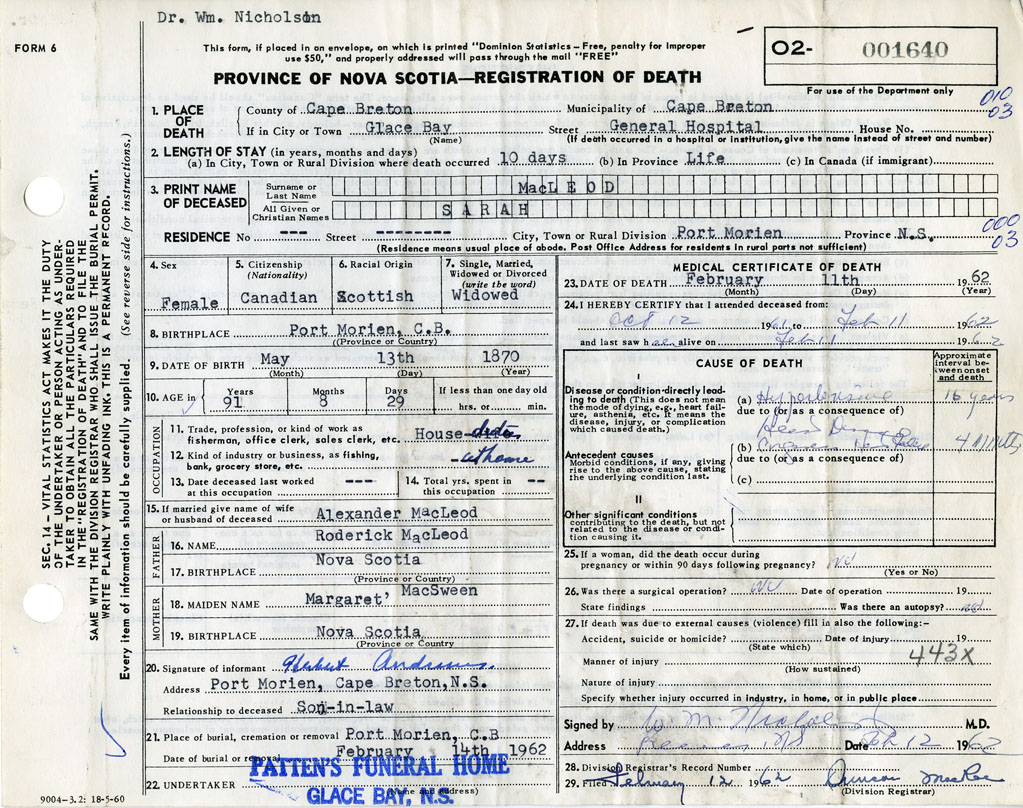 Dr. Wm. Nicholson
FORM 6
This form, if placed in an envelope, on which is printed "Dominion Statistics – Free, penalty for improper
use $50," and properly addressed will pass through the mail "FREE"
PROVINCE OF NOVA SCOTIA—REGISTRATION OF DEATH
02- 001640
For use of the Department only
010
03
1. PLACE OF DEATH
County of Cape Breton Municipality of Cape Breton
If in City or Town Glace Bay Street General Hospital House No.
(Name) (If death occurred in a hospital or institution, give the name instead of street and number)
2. LENGTH OF STAY (in years, months and days)
(a) In City, Town or Rural Division where death occurred 10 days (b) In Province Life (c) In Canada (if immigrant)
3. PRINT NAME OF DECEASED
Surname or Last Name MacLEOD
All Given or Christian Names SARAH
000
03
RESIDENCE No --- Street -------- City, Town or Rural Division Port Morien Province N.S.
(Residence means usual place of abode. Post Office Address for residents in rural parts not sufficient)
4. Sex Female
5. Citizenship (Nationality) Canadian
6. Racial Origin Scottish
7. Single, Married, Widowed or Divorced (write the word) Widowed
8. BIRTHPLACE Port Morien, C.B.
(Province or Country)
9. DATE OF BIRTH May 13th 1870
(Month) (Day) (Year)
10. AGE in Years 91 Months 8 Days 29 If less than one day old hrs. or min.
OCCUPATION
11. Trade, profession, or kind of work as
fisherman, office clerk, sales clerk, etc. House duties
12. Kind of industry or business, as fishing,
bank, grocery store, etc. - at home
13. Date deceased last worked
at this occupation ---
14. Total yrs. spent in
this occupation --
15. If married give name of wife
or husband of deceased Alexander MacLeod
FATHER
16. NAME Roderick MacLeod
17. BIRTHPLACE Nova Scotia
(Province or Country)
MOTHER
18. MAIDEN NAME Margaret' MacSween
19. BIRTHPLACE Nova Scotia
(Province or Country
20. Signature of informant Herbert Andrews.
Address Port Morien, Cape Breton, N.S.
Relationship to deceased Son-in-law
21. Place of burial, cremation or removal Port Morien, C.B
Date of burial or removal February 14th 1962
22. UNDERTAKER
(Name and address)
PATTEN'S FUNERAL HOME
GLACE BAY, N.S.
9004-3.2: 18-5-60
MEDICAL CERTIFICATE OF DEATH
23. DATE OF DEATH February 11th 1962
(Month) (Day) (Year)
24. I HEREBY CERTIFY that I attended deceased from:
Oct 12 1961 to Feb 11 1962
and last saw h er alive on Feb 11 1962
CAUSE OF DEATH
Approximate interval between onset and death
I
Disease or condition directly leading to death (This does not mean the mode of dying, e.g., heart failure, asthenia, etc. It means the disease, injury, or complication which caused death.)
(a) Hypertensive 16 years
due to (or as a consequence of)
Antecedent causes
Morbid conditions, if any, giving rise to the above cause, stating the underlying condition last.
(b)
due to (or as a consequence of)
(c)
II
Other significant conditions
contributing to the death, but not related to the disease or condition causing it.
25. If a woman, did the death occur during
pregnancy or within 90 days following pregnancy? No
(Yes or No)
26. Was there a surgical operation? No Date of operation 19
State findings Was there an autopsy?
27. If death was due to external causes (violence) fill in also the following:-
Accident, suicide or homicide? Date of injury 19
(State which)
443X
Manner of injury
(How sustained)
Nature of injury
Specify whether injury occurred in industry, in home, or in public place
Signed by M.D.
Address Date Feb 12 1962
28. Division Registrar's Record Number
29. Filed February 12 1962 Duncan MacRae
(Division Registrar)
SEC. 14 – VITAL STATISTICS ACT MAKES IT THE DUTY
OF THE UNDERTAKER OR PERSON ACTING AS UNDER-
TAKER TO OBTAIN ALL THE PARTICULARS REQUIRED
IN THE "REGISTRATION OF DEATH" AND TO FILE THE
SAME WITH THE DIVISION REGISTRAR WHO SHALL ISSUE THE BURIAL PERMIT.
WRITE PLAINLY WITH UNFADING INK. THIS IS A PERMANENT RECORD.
Every item of information should be carefully supplied. (See reverse side for instructions.)